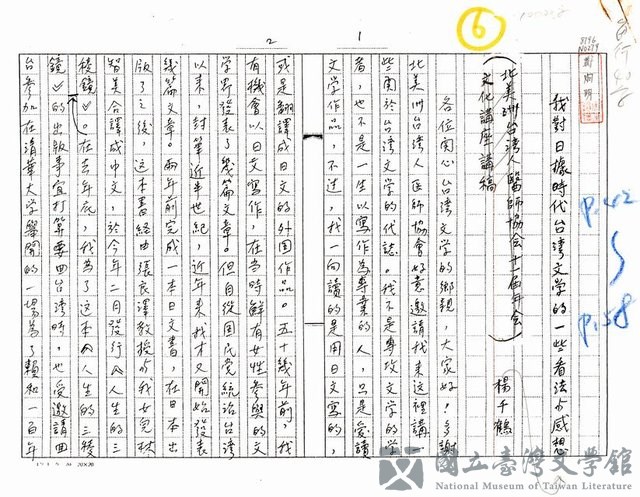 我對日據時代台湾文学的一些看法与感想
楊千鶴
(北美洲台湾人醫師協会十一届年会)
文化講座講稿
各位関心台湾文学的鄉親,大家好!多謝
北美洲台湾人医師協會好意邀請我来這裡講一
些関於台湾文学的代誌。我不是專攻文学的学
者,也不是一生以寫作為專業的人,只是愛讀
文学作品,不过,我一向讀的是用日文寫的,
或是翻譯成日文的外国作品。五十幾年前,我
有機會以日文寫作,在当時鮮有女性参與的文
学界發表了幾篇文章。但自從国民党統治台湾
以来,封筆近半世紀,近年来我才又開始發表
幾篇文章。兩年前完成一本日文書,在日本出
版了之後,這本書経由張良澤教授与我女兒林
智美合譯成中文,於今年二月發行《人生的三
稜鏡》。在去年底,我為了這本《人生的三稜
鏡》的出版事宜打算要回台湾時,也受邀請回
台参加在清華大学舉開的一場為了賴和一百年
⑥
1
2
p.42
p.58
国立臺灣文學館
National Museum of Taiwan Literature